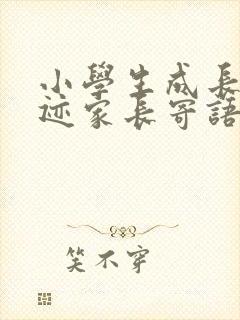 小學生成長
迹家長寄語
笑不穿